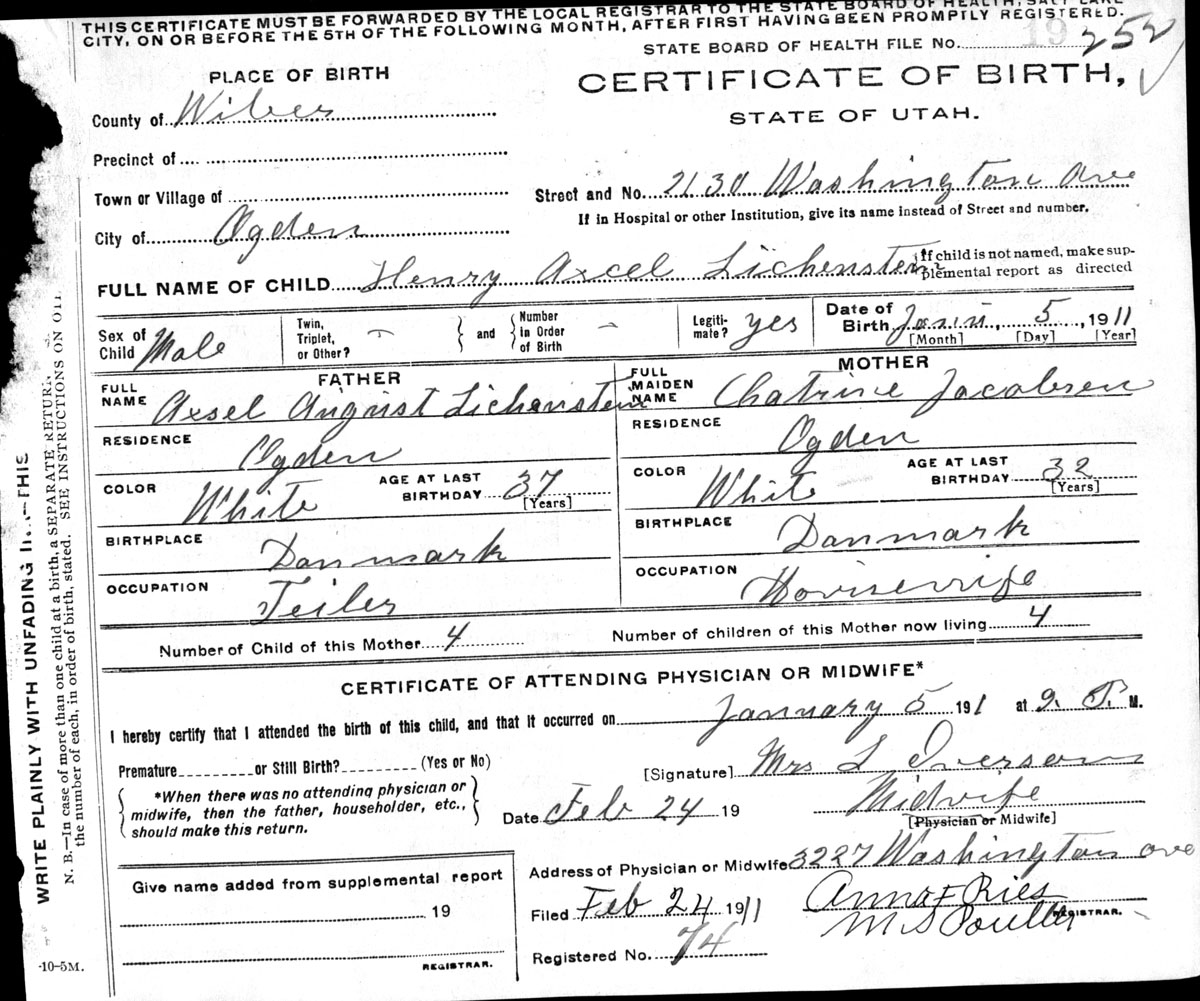 THIS CERTIFICATE MUST BE FORWARDED BY THE LOCAL REGISTRAR TO THE STATE BOARD OF HEALTH, SALT LAKE
CITY, ON OR BEFORE THE 5TH OF THE FOLLOWING MONTH, AFTER FIRST HAVING BEEN PROMPTLY REGISTERED.
STATE BOARD OF HEALTH FILE No. 19 252
PLACE OF BIRTH
CERTIFICATE OF BIRTH,
STATE OF UTAH.
County of Wiber
Precinct of
Town or Village of
Street and No. 2130 Washington Ave
If in Hospital or other Institution, give its name instead of Street and number.
City of Ogden
FULL NAME OF CHILD Henry Axcel Lichenstein
If child is not named, make sup-
plemental report as directed
Sex of Child Male
Twin, Triplet, or Other?
and
Number in Order of Birth
Legiti-mate? yes
Date of Birth Janu, 5, 1911
[Month] [Day] [Year]
FATHER
FULL NAME Axsel August Lichenstein
MOTHER
FULL MAIDEN NAME Chatrine Jacobsen
RESIDENCE Ogden
RESIDENCE Ogden
COLOR White
AGE AT LAST BIRTHDAY 37 [Years]
COLOR White
AGE AT LAST BIRTHDAY 32 [Years]
BIRTHPLACE Danmark
BIRTHPLACE Danmark
OCCUPATION Teiler
OCCUPATION Housewife
Number of Child of this Mother 4
Number of children of this Mother now living 4
CERTIFICATE OF ATTENDING PHYSICIAN OR MIDWIFE*
I hereby certify that I attended the birth of this child, and that it occurred on January 5 191 1 at 9. P. M.
Premature or Still Birth? (Yes or No)
[Signature] Mrs L Iverson
*When there was no attending physician or
midwife, then the father, householder, etc.,
should make this return.
Date Feb 24 19
Midwife
[Physician or Midwife]
Address of Physician or Midwife 3227 Washington ave
Give name added from supplemental report
19
REGISTRAR.
Filed Feb 24 1911
Anna F Ries
M S Poulter
REGISTRAR.
Registered No. 74
-10-5M.
WRITE PLAINLY WITH UNFADING THIS
N. B.—In case of more than one child at a birth, a SEPARATE RETURN
the number of each, in order of birth, stated. SEE INSTRUCTIONS ON